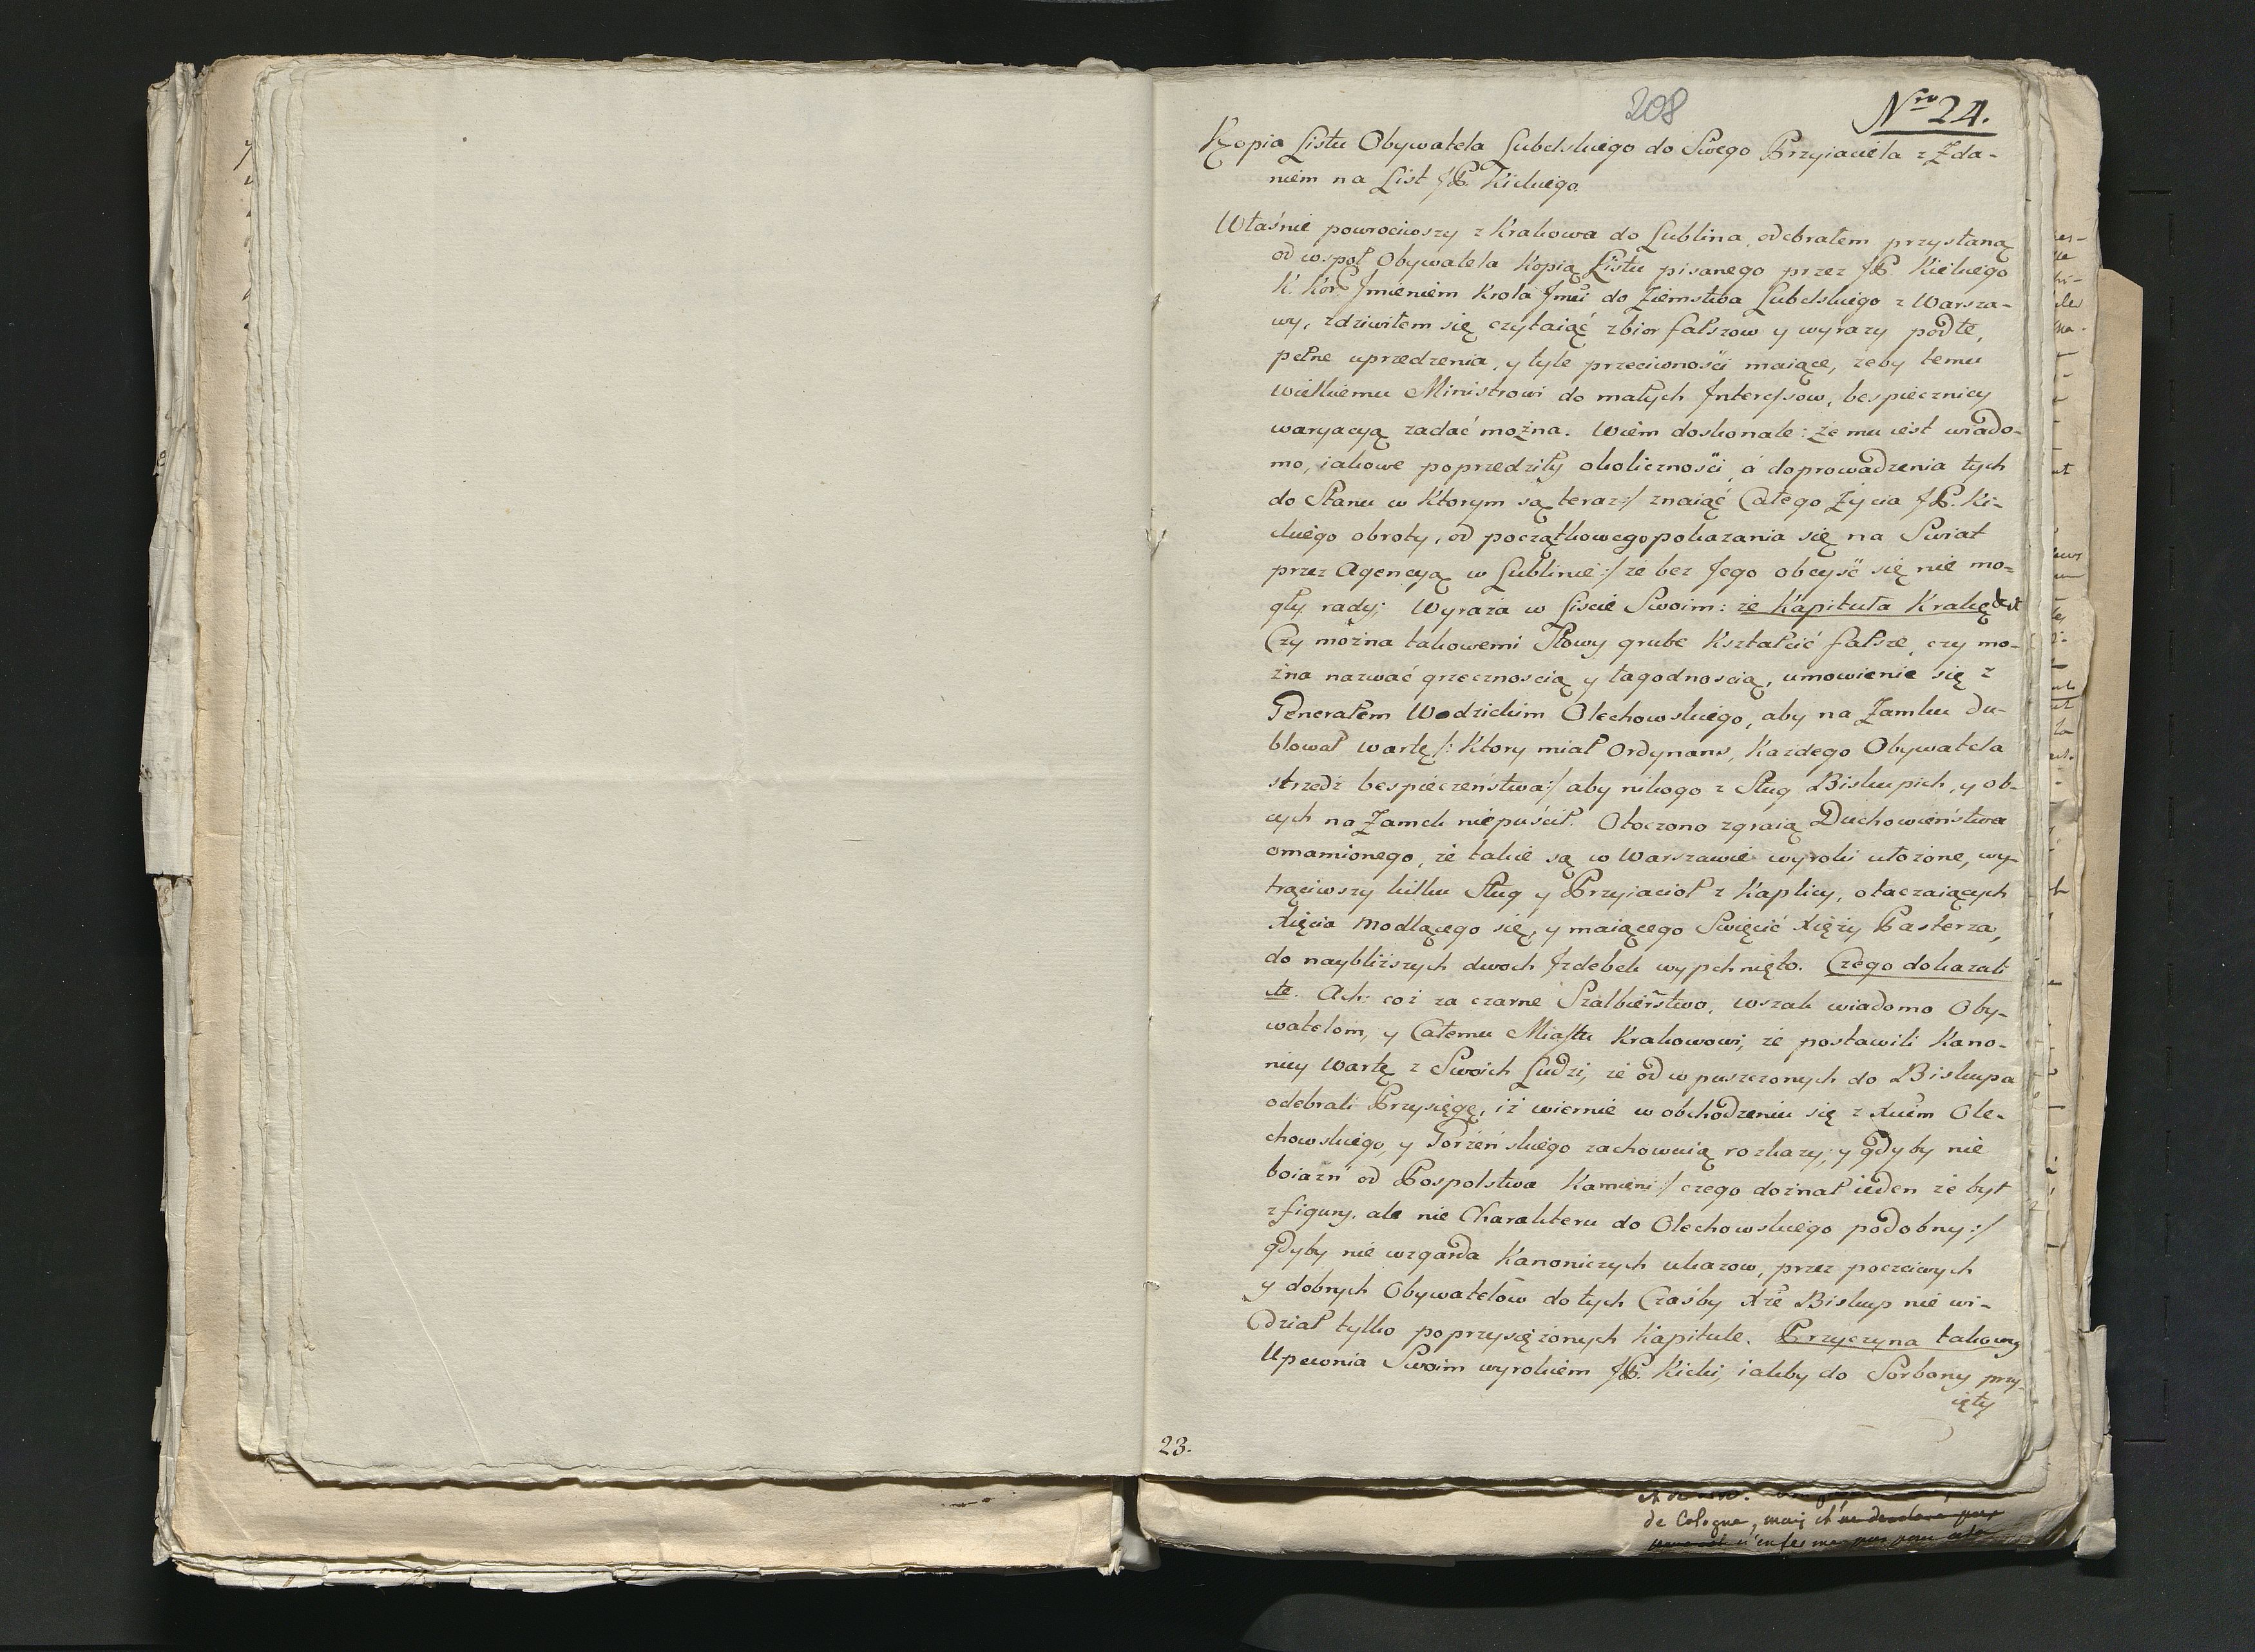 208
Nro 24.
Kopia Listu Obywatela Lubelskiego do Swego Przyiaciela z Zda-
niem na List JP. Kickiego
Właśnie powrociwszy z Krakowa do Lublina odebrałem przysłaną
od wspoł Obywatela Kopią Listu pisanego przez JP. Kickiego
K. Kor. Jmieniem Krola Jmci do Ziemstwa Lubelskiego z Warsza-
wy, zdziwiłem się czytaiąć zbior fałszow y wyrazy podłe,
pełne uprzedzenia, y tyle przeciwności maiące, żeby temu
wielkiemu Ministrowi do małych Interessow, bespiecznicy
waryacyą zadać można. Wiem doskonale: że mu iest wiado-
mo, iakowe poprzedziły okoliczności, á doprowadzenia tych
do Stanu w Ktorym są teraz:/ znaiąć Całego Życia JP. Ki-
ckiego obroty, od początkowego pokazania się na Swiat
przez Agencyą w Lublinie:/ że bez Jego obeyść się nie mo-
gły rady; Wyraża w Liscie Swoim: że Kapituła Krak: &ct
Czy można takowemi Słowy grube Kształcić fałsze, czy mo-
żna nazwać grzecznoscią y łagodnoscią, umowienie się z
Generałem Wodzickim Olechowskiego, aby na Zamku du-
blował wartę/: Ktory miał Ordynans, Kazdego Obywatela
strzedź bespieczeństwa:/ aby nikogo z Sług Biskupich, y ob-
cych na Zamek niepuścił. Otoczono zgraią Duchowieństwa
omamionego, że takie są w Warszawie wyroki ułożone, wy-
trąciwszy kilku Sług y Przyiacioł z Kaplicy, otaczaiących
Xięcia modlącego się, y maiącego Swięcić Xięży Pasterza,
do naybliższych dwoch Izdebek wypchnięto. Czego dokazali
&te. Ach: coż za czarne Szalbierstwo, wszak wiadomo Oby-
watelom, y Całemu Miastu Krakowowi, że postawili Kano-
nicy Wartę z Swoich Ludzi, że od wpuszczonych do Biskupa
odebrali Przysięgę, iż wiernie w obchodzeniu się z Xciem Ole-
chowskiego, y Gorzeńskiego zachowaią rozkazy; y gdyby nie
boiazń od Pospolstwa Kamieni:/ czego doznał ieden że był
z figury, ale nie Charakteru do Olechowskiego podobny:/
gdyby nie wzgarda Kanoniczych ukazow, przez poczciwych
y dobrych Obywatelow do tych Czasby Xże Biskup nie wi-
dział tylko poprzysiężonych Kapitule. Przyczyna takowey
Upewnia Swoim wyrokiem JP. Kicki, iakby do Sorbony przy-
ięty
23.
de Cologne, mais